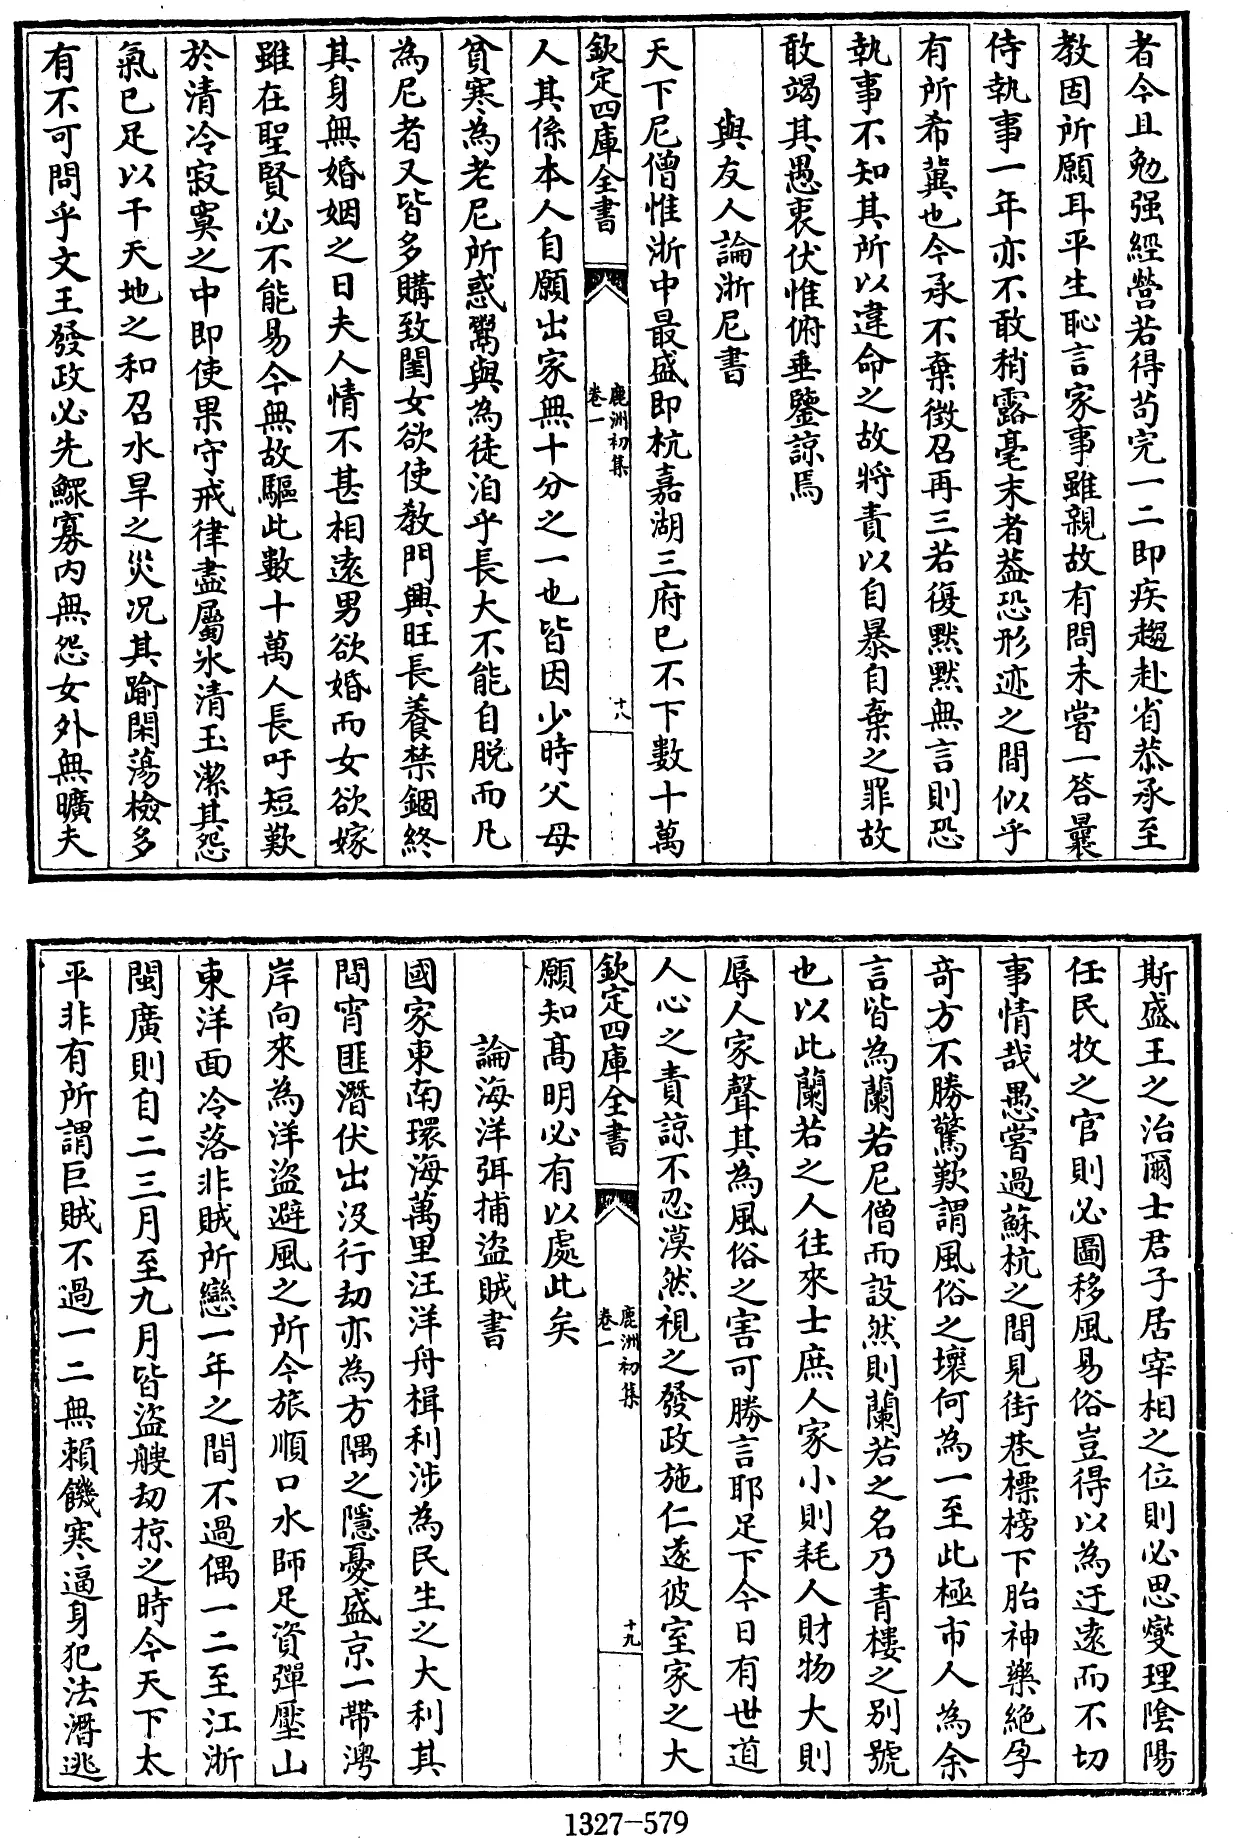 者今且勉强經營若得苟完一二即疾趨赴省恭承至
教固所願耳平生恥言家事雖親故有問未嘗一答曩
侍執事一年亦不敢稍露毫末者葢恐形迹之間似乎
有所希冀也今承不棄徴召再三若復默默無言則恐
執事不知其所以違命之故將責以自暴自棄之罪故
敢竭其愚衷伏惟俯垂鑒諒焉
與友人論浙尼書
天下尼僧惟浙中最盛即杭嘉湖三府已不下數十萬
欽定四庫全書
鹿洲初集
卷一
十八
人其係本人自願出家無十分之一也皆因少時父母
貧寒為老尼所惑鬻與為徒洎乎長大不能自脱而凡
為尼者又皆多購致閨女欲使教門興旺長養禁錮終
其身無婚姻之日夫人情不甚相遠男欲婚而女欲嫁
雖在聖賢必不能易今無故驅此數十萬人長吁短歎
於清冷寂寞之中即使果守戒律盡屬氷清玉潔其怨
氣已足以干天地之和召水旱之災况其踰閑蕩檢多
有不可問乎文王發政必先鰥寡内無怨女外無曠夫
斯盛王之治爾士君子居宰相之位則必思燮理隂陽
任民牧之官則必圖移風易俗豈得以為迂遠而不切
事情哉愚嘗過蘇杭之間見街巷標榜下胎神藥絶孕
竒方不勝驚歎謂風俗之壞何為一至此極市人為余
言皆為蘭若尼僧而設然則蘭若之名乃青樓之别號
也以此蘭若之人往來士庶人家小則耗人財物大則
辱人家聲其為風俗之害可勝言耶足下今日有世道
人心之責諒不忍漠然視之發政施仁遂彼室家之大
欽定四庫全書
鹿洲初集
卷一
十九
願知髙明必有以處此矣
論海洋弭捕盗賊書
國家東南環海萬里汪洋舟楫利涉為民生之大利其
間宵匪潛伏出没行刼亦為方隅之隱憂盛京一帶灣
岸向來為洋盗避風之所今旅順口水師足資彈壓山
東洋面冷落非賊所戀一年之間不過偶一二至江浙
閩廣則自二三月至九月皆盗艘刼掠之時今天下太
平非有所謂巨賊不過一二無賴饑寒逼身犯法潛逃
1327-579